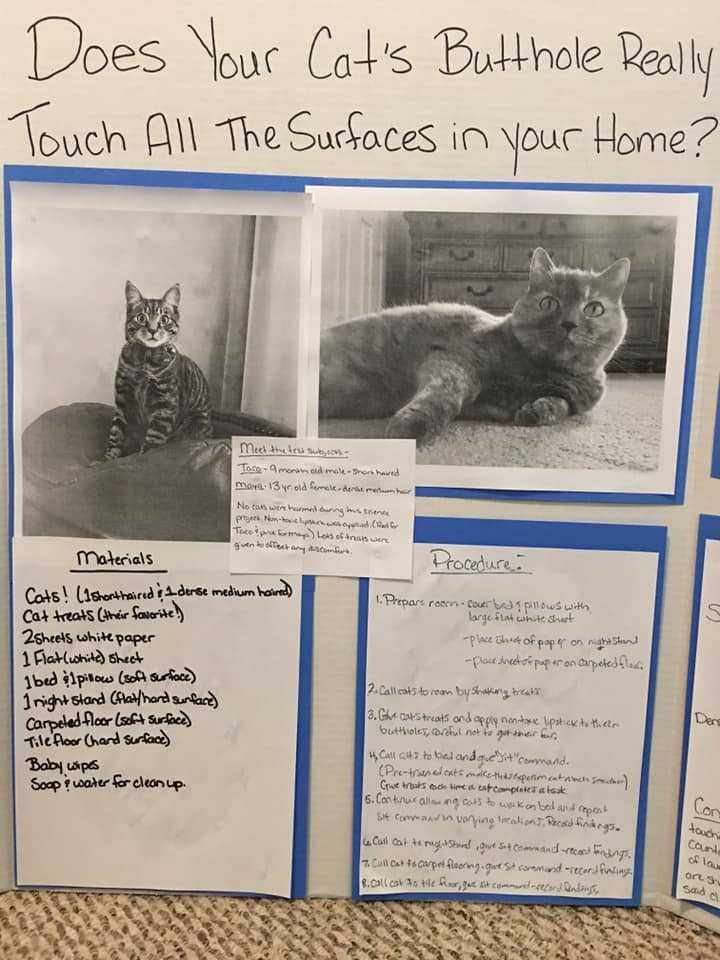 Does Your Cat's Butthole Really
Touch All The Surfaces in your Home?
Meet the test subjects-
Taco - 9 month old male - short haired
Maya - 13 yr. old female - dense medium hair
No cats were harmed during this science
project. Non-toxic lipstick was applied. (Red for
Taco & pink for Maya) Lots of treats were
given to offset any discomfort.
Materials
Cats! (1 shorthaired & 1 dense medium haired)
Cat treats (their favorite!)
2 sheets white paper
1 Flat (white) sheet
1 bed & 1 pillow (soft surface)
1 night stand (flat/hard surface)
Carpeted floor (soft surface)
Tile floor (hard surface)
Baby wipes
Soap & water for clean up.
Procedure:
1. Prepare room - cover bed & pillows with
large flat white sheet
- place sheet of paper on nightstand
- place sheet of paper on carpeted floor.
2. Call cats to room by shaking treats
3. Give cats treats and apply non-toxic lipstick to their
buttholes, careful not to get their fur.
4. Call cats to bed and give "sit" command.
(Pre-trained cats make this experiment much smoother)
Give treats each time a cat completes a task
5. Continue allowing cats to walk on bed and repeat
sit command in varying locations. Record findings.
6. Call cat to nightstand, give sit command - record findings.
7. Call cat to carpet flooring, give sit command - record findings.
8. Call cat to tile floor, give sit command - record findings.
S
Den
Con
touch
Count
of lau
are sh
said c